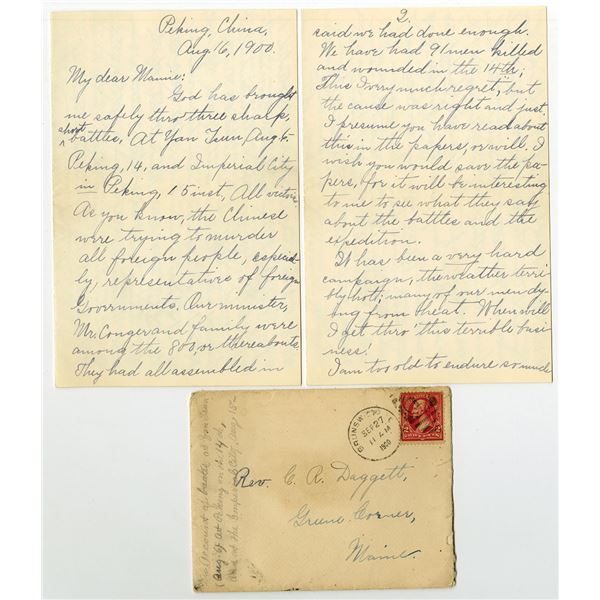 Peking, China,
Aug 16, 1900.
My dear Mamie:
God has brought
me safely thro three sharp,
short
battles. At Yan Tsun, Aug 5-
Peking, 14, and Imperial City
in Peking, 15 inst, All victories.
As you know, the Chinese
were trying to murder
all foreign people, especial-
ly, representatives of foreign
Governments. Our minister,
Mr. Conger and family were
among the 800, or thereabouts.
They had all assembled in
2.
said we had done enough.
We have had 91 men killed
and wounded in the 14th;
This I very much regret, but
the cause was right and just.
I presume you have read about
this in the papers, or will. I
wish you would save the pa-
pers, for it will be interesting
to me to see what they say
about the battles and the
expedition.
It has been a very hard
campaign, the weather terri-
bly hot; many of our men dy-
ing from heat. When will
I get thro' this terrible busi-
ness!
I am too old to endure so much
BRUNSWICK
SEP 27
11 AM
1900
Rev. C. R. Daggett,
Greene Corner,
Maine.
account of battle at Yan Tsun
Aug 5 at Peking on the 14th,
and at the Imperial City, Aug 15-